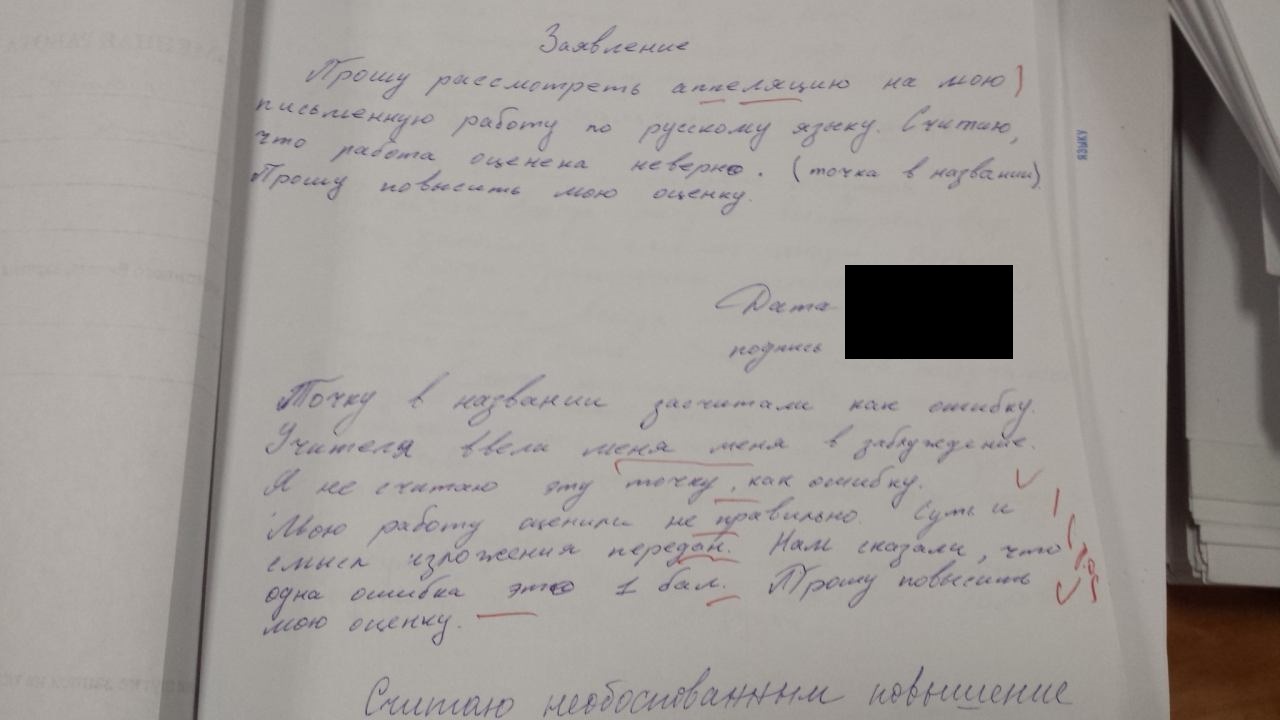 Заявление
Прошу рассмотреть аппеляцию на мою
письменную работу по русскому языку. Считаю,
что работа оценена неверно. (точка в названии).
Прошу повысить мою оценку.
языку
Дата
подпись
Точку в названии засчитали как ошибку.
Учителя ввели меня меня в заблуждение.
Я не считаю эту точку, как ошибку.
Мою работу оценили не правильно. Суть и
смысл изложения передан. Нам сказали, что
одна ошибка это 1 бал. Прошу повысить
мою оценку.
Считаю необоснованным повышение